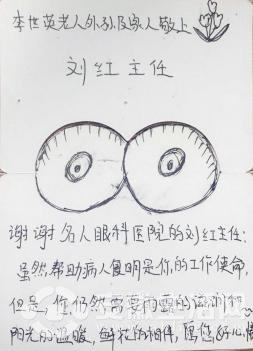 李世英老人外孙及家人敬上
刘红主任
谢谢名人眼科医院的刘红主任:
虽然帮助病人复明是你的工作使命,
但是你仍然需要雨露的滋润和
阳光的温暖,鲜花的相伴,愿您好心情